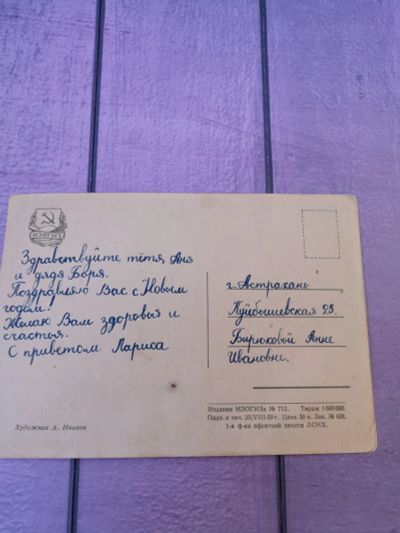 ИЗОГИЗ
Здравствуйте тётя Аня
и дядя Боря.
Поздравляю Вас с Новым
годом!
Желаю Вам здоровья и
счастья.
С приветом Лариса
г. Астрахань
Куйбышевская 28.
Бирюковой Анне
Ивановне.
Издание ИЗОГИЗа № 712. Тираж 1 600 000.
Подп. к печ. 25/VIII-59 г. Цена 30 к. Зак. № 628.
1-я ф-ка офсетной печати ЛСНХ.
Художник А. Иванов